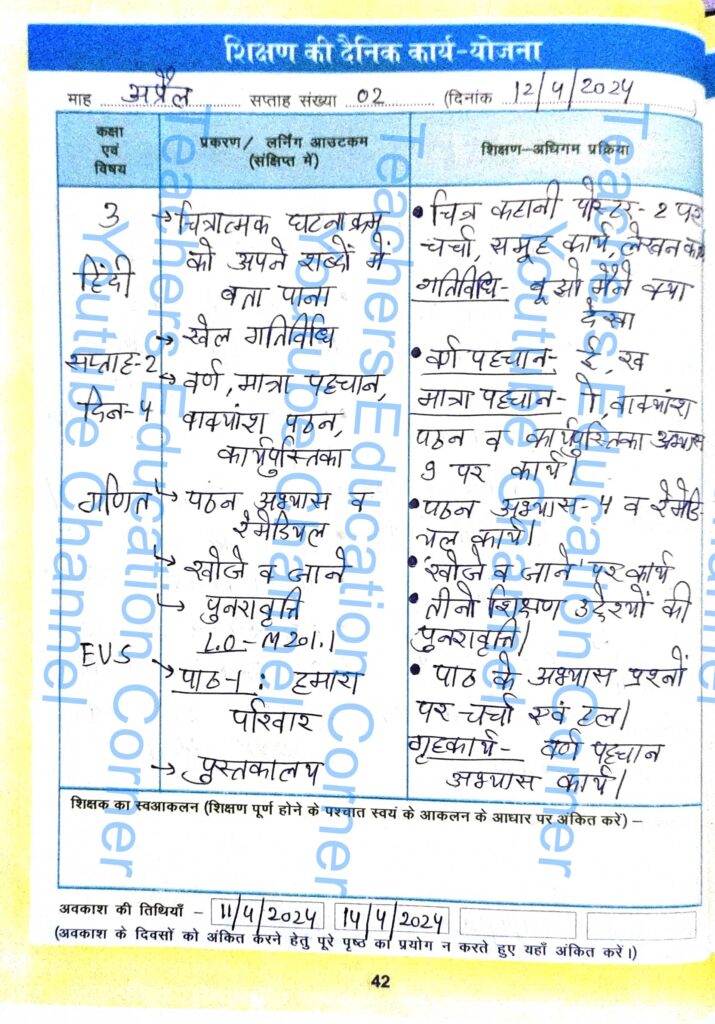 शिक्षण की दैनिक कार्य-योजना
माह अप्रैल सप्ताह संख्या 02 (दिनांक 12/4/2024
कक्षा
एवं
विषय
प्रकरण/ लर्निंग आउटकम
(संक्षिप्त में)
शिक्षण-अधिगम प्रक्रिया
3
हिंदी
सप्ताह-2
दिन-4
→ चित्रात्मक घटनाक्रम
को अपने शब्दों में
बता पाना
→ खेल गतिविधि
→ वर्ण, मात्रा पहचान,
वाक्यांश पठन,
कार्यपुस्तिका
→ पठन अभ्यास व
रेमेडियल
• चित्र कहानी पोस्टर-2 पर
चर्चा, समूह कार्य, लेखन कार्य
गतिविधि- बूझो मैंने क्या
देखा
• वर्ण पहचान- ई, ख
मात्रा पहचान- ी, वाक्यांश
पठन व कार्यपुस्तिका अभ्यास
9 पर कार्य।
• पठन अभ्यास-4 व रेमेडि-
यल कार्य।
गणित
→ खोजे व जाने
→ पुनरावृत्ति
L.O-M201.1
• 'खोजे व जाने' पर कार्य
• तीनो शिक्षण उद्देश्यों की
पुनरावृत्ति।
EVS
→ पाठ-1 : हमारा
परिवार
→ पुस्तकालय
• पाठ के अभ्यास प्रश्नों
पर चर्चा एवं हल।
गृहकार्य- वर्ण पहचान
अभ्यास कार्य।
शिक्षक का स्वआकलन (शिक्षण पूर्ण होने के पश्चात स्वयं के आकलन के आधार पर अंकित करें) –
अवकाश की तिथियाँ – 11/4/2024 14/4/2024
(अवकाश के दिवसों को अंकित करने हेतु पूरे पृष्ठ का प्रयोग न करते हुए यहाँ अंकित करें।)
42
Teachers Education Corner
Youtube Channel
Teachers Education Corner
Youtube Channel
Teachers Education Corner
Youtube Channel